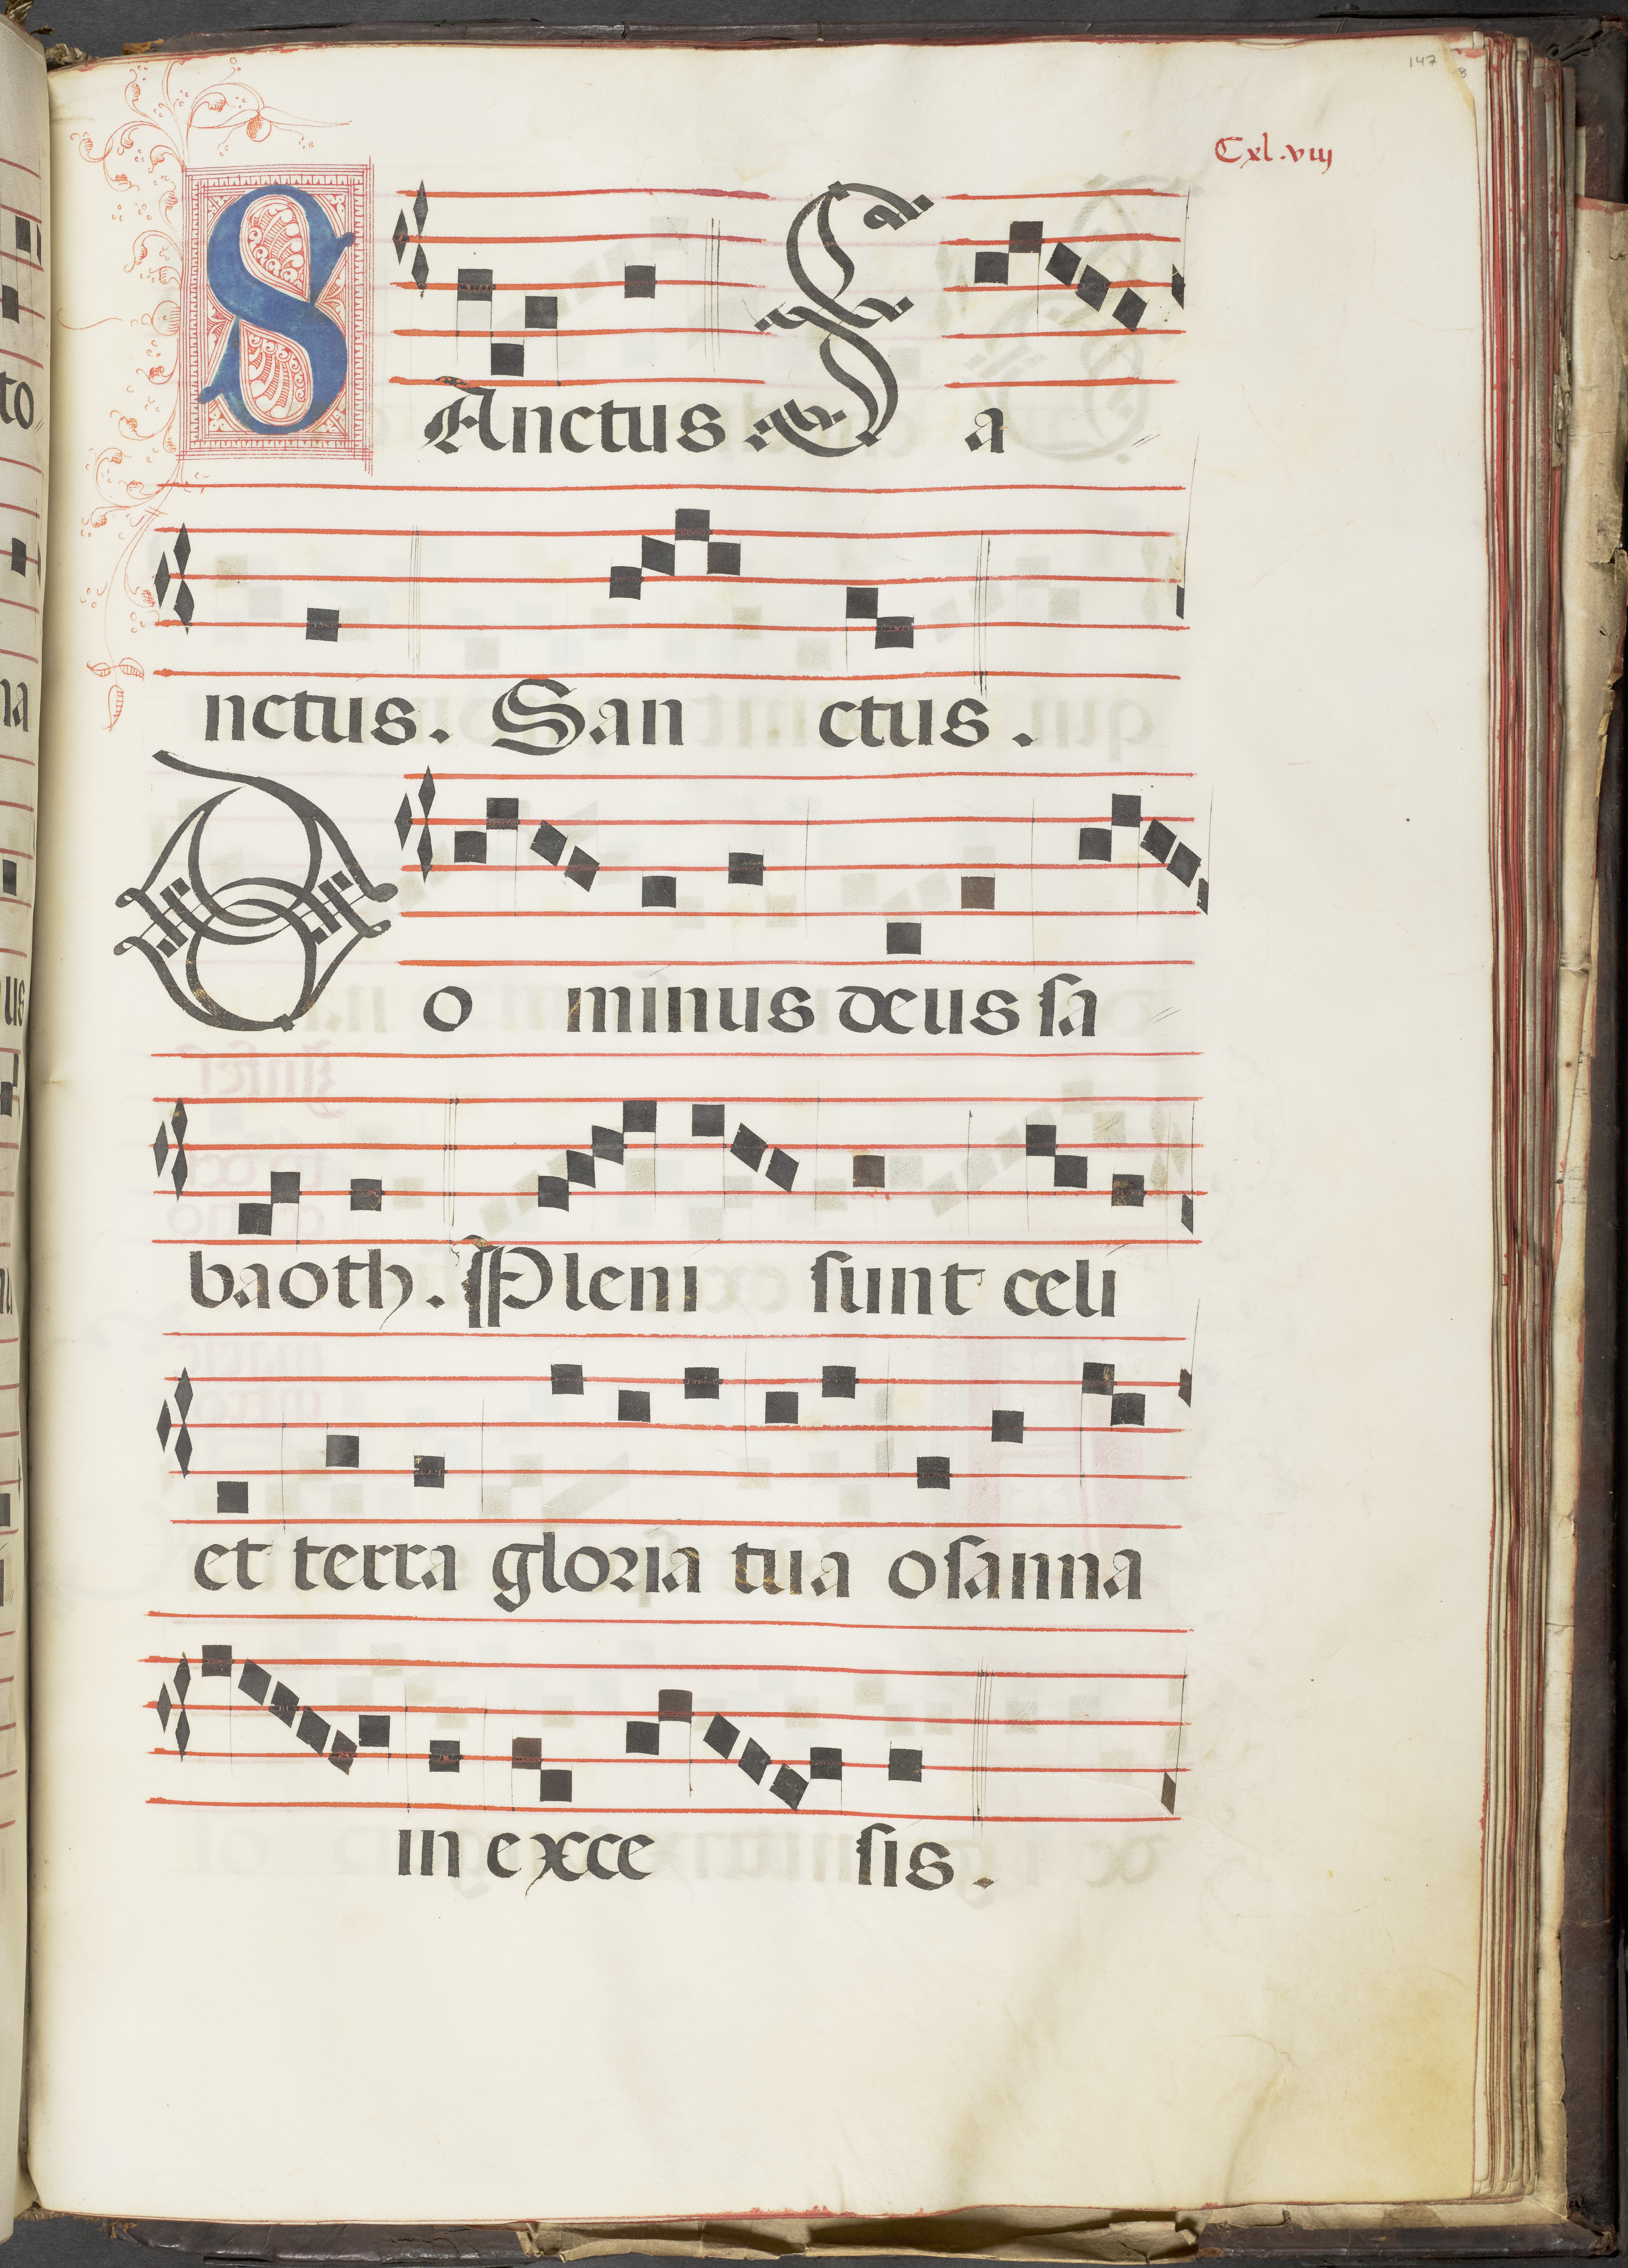 147 8
Cxl.viij
SAnctus. S a
nctus. San ctus.
Do minus deus sa
baoth. Pleni sunt celi
et terra gloria tua osanna
in exce sis.
to
na
us